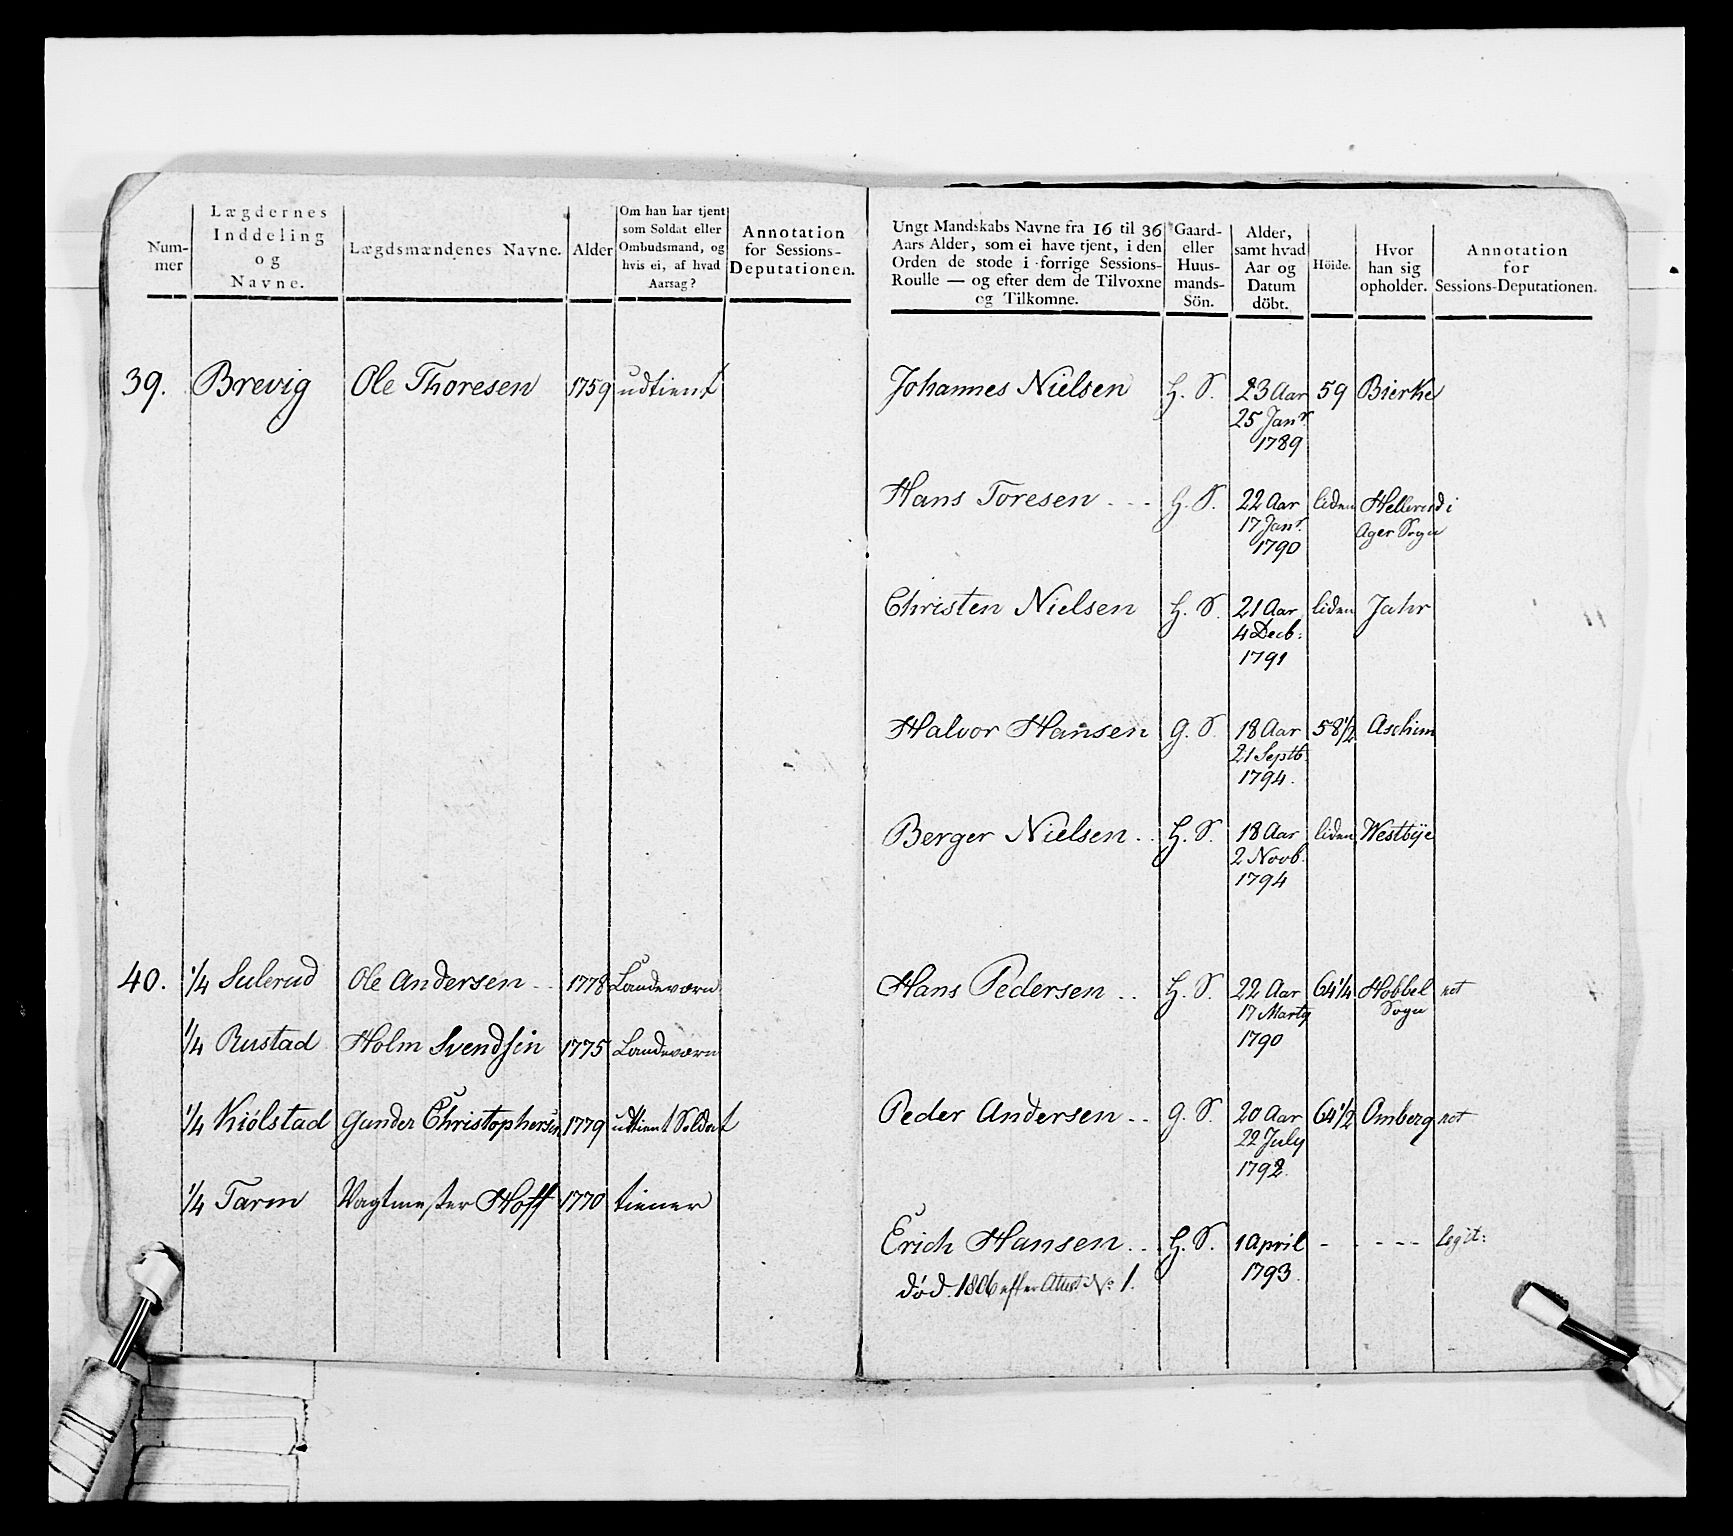 Num-
mer
Lægdernes
Inddeling
og
Navne.
Lægdsmændenes Navne.
Alder
Om han har tjent
som Soldat eller
Ombudsmand, og
hvis ei, af hvad
Aarsag?
Annotation
for Sessions-
Deputationen.
39. Brevig Ole Thoresen 1759 udtient
40. 1/4 Sulerud Ole Andersen .. 1778 Landeværn
1/4 Rustad Holm Svendsen 1775 Landeværn
1/4 Kiölstad Gunder Christophersen 1779 udtient Soldat
1/4 Tarm Vagtmester Hoff 1770 tiener
Ungt Mandskabs Navne fra 16 til 36
Aars Alder, som ei have tjent, i den
Orden de stode i forrige Sessions-
Roulle — og efter dem de Tilvoxne
og Tilkomne.
Gaard-
eller
Huus-
mands-
Sön.
Alder,
samt hvad
Aar og
Datum
döbt.
Höide.
Hvor
han sig
opholder.
Annotation
for
Sessions-Deputationen.
Johannes Nielsen H. S. 23 Aar 59 Bierke
25 Janr.
1789
Hans Toresen - - - H. S. 22 Aar liden Hellerud i
17 Janr. Ager Sogn
1790
Christen Nielsen H. S. 21 Aar liden Jahr
4 Decb:
1791
Halvor Hansen G. S. 18 Aar 58 1/2 Aschim
21 Septb.
1794.
Berger Nielsen .. H. S. 18 Aar liden Westbÿe
2 Novb.
1794
Hans Pedersen .. H. S. 22 Aar 64 1/4 Hobbel
17 Marty Sogn
1790
Peder Andersen .. G. S. 20 Aar 64 1/2 Omberg
22 July
1792.
Erich Hansen .. H. S. 1 April - - - - - legit:
död. 1806 efter Attest No: 1. 1793.